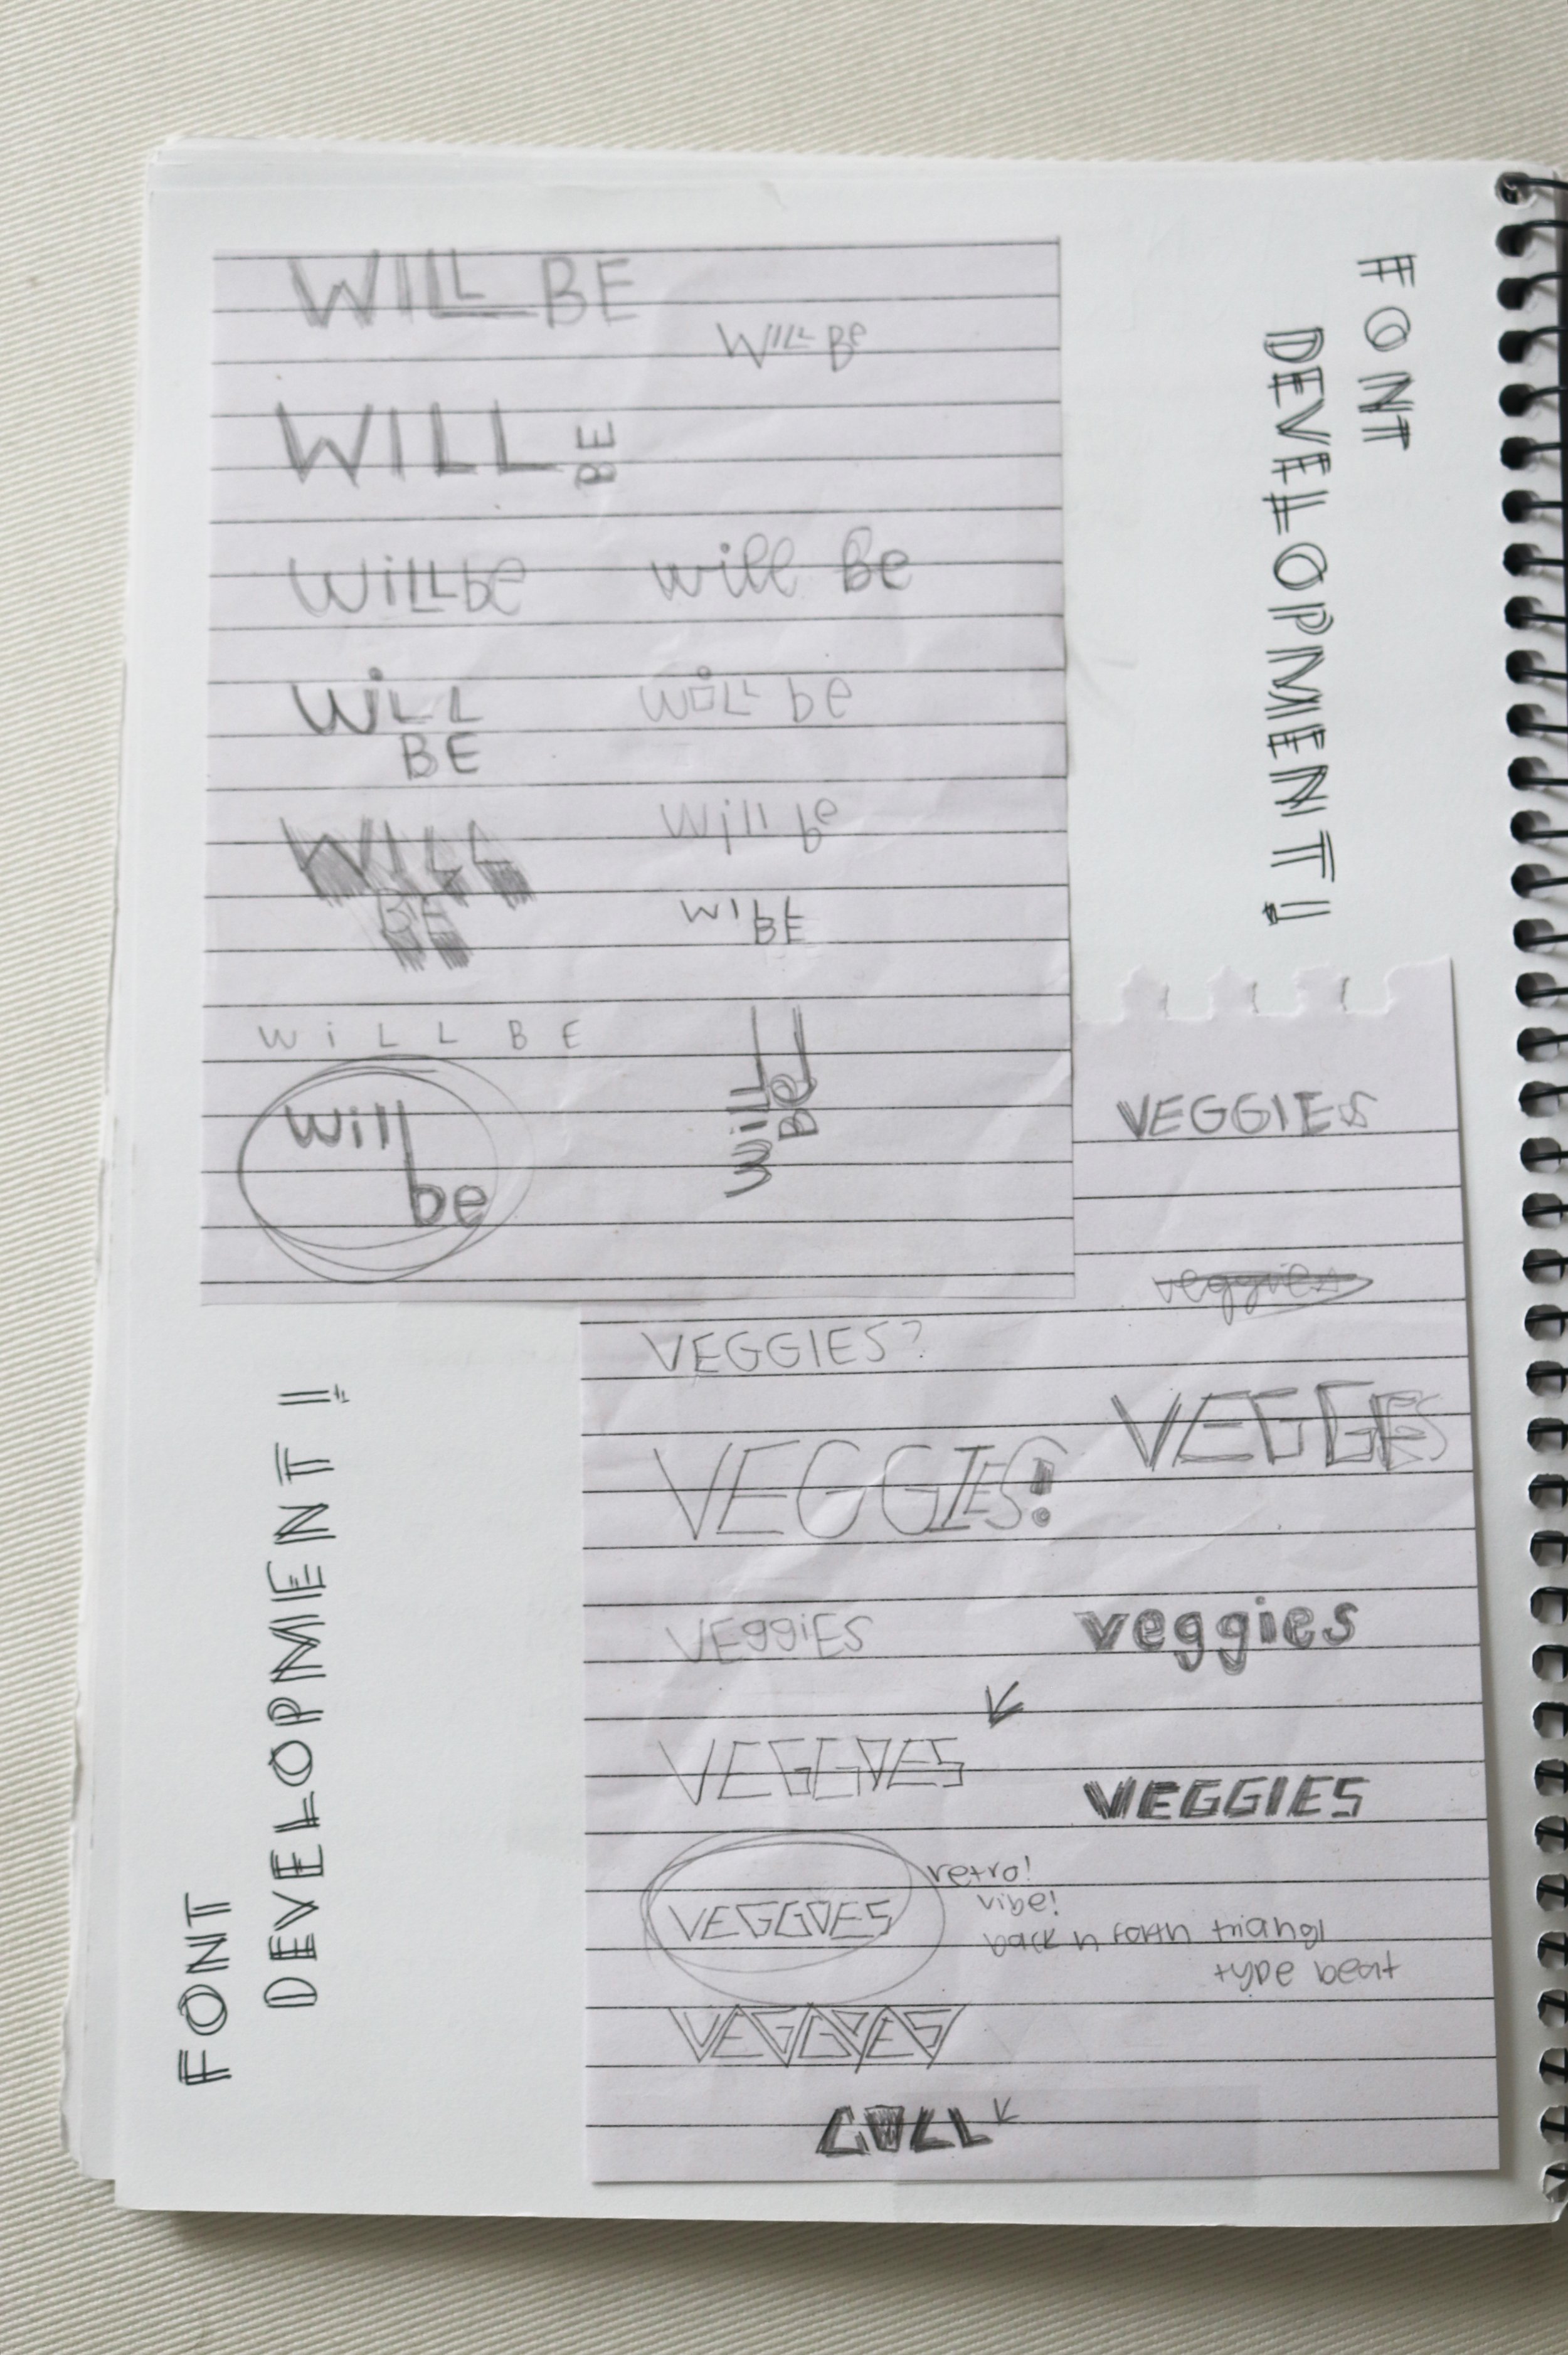 FONT
DEVELOPMENT!
WILL BE
WILL BE
WILL BE
WiLLbe
will Be
WiLL
BE
WiLL be
WILL
BE
will be
WILL
BE
WiLL BE
will
be
will
Be
VEGGIES
veggies
VEGGIES?
VEGGIES
VEGGIES!
VEggiES
veggies
VEGGIES
VEGGIES
VEGGIES
retro!
vibe!
back n forth triangl
type beat
VEGGIES
COLL
FONT
DEVELOPMENT!